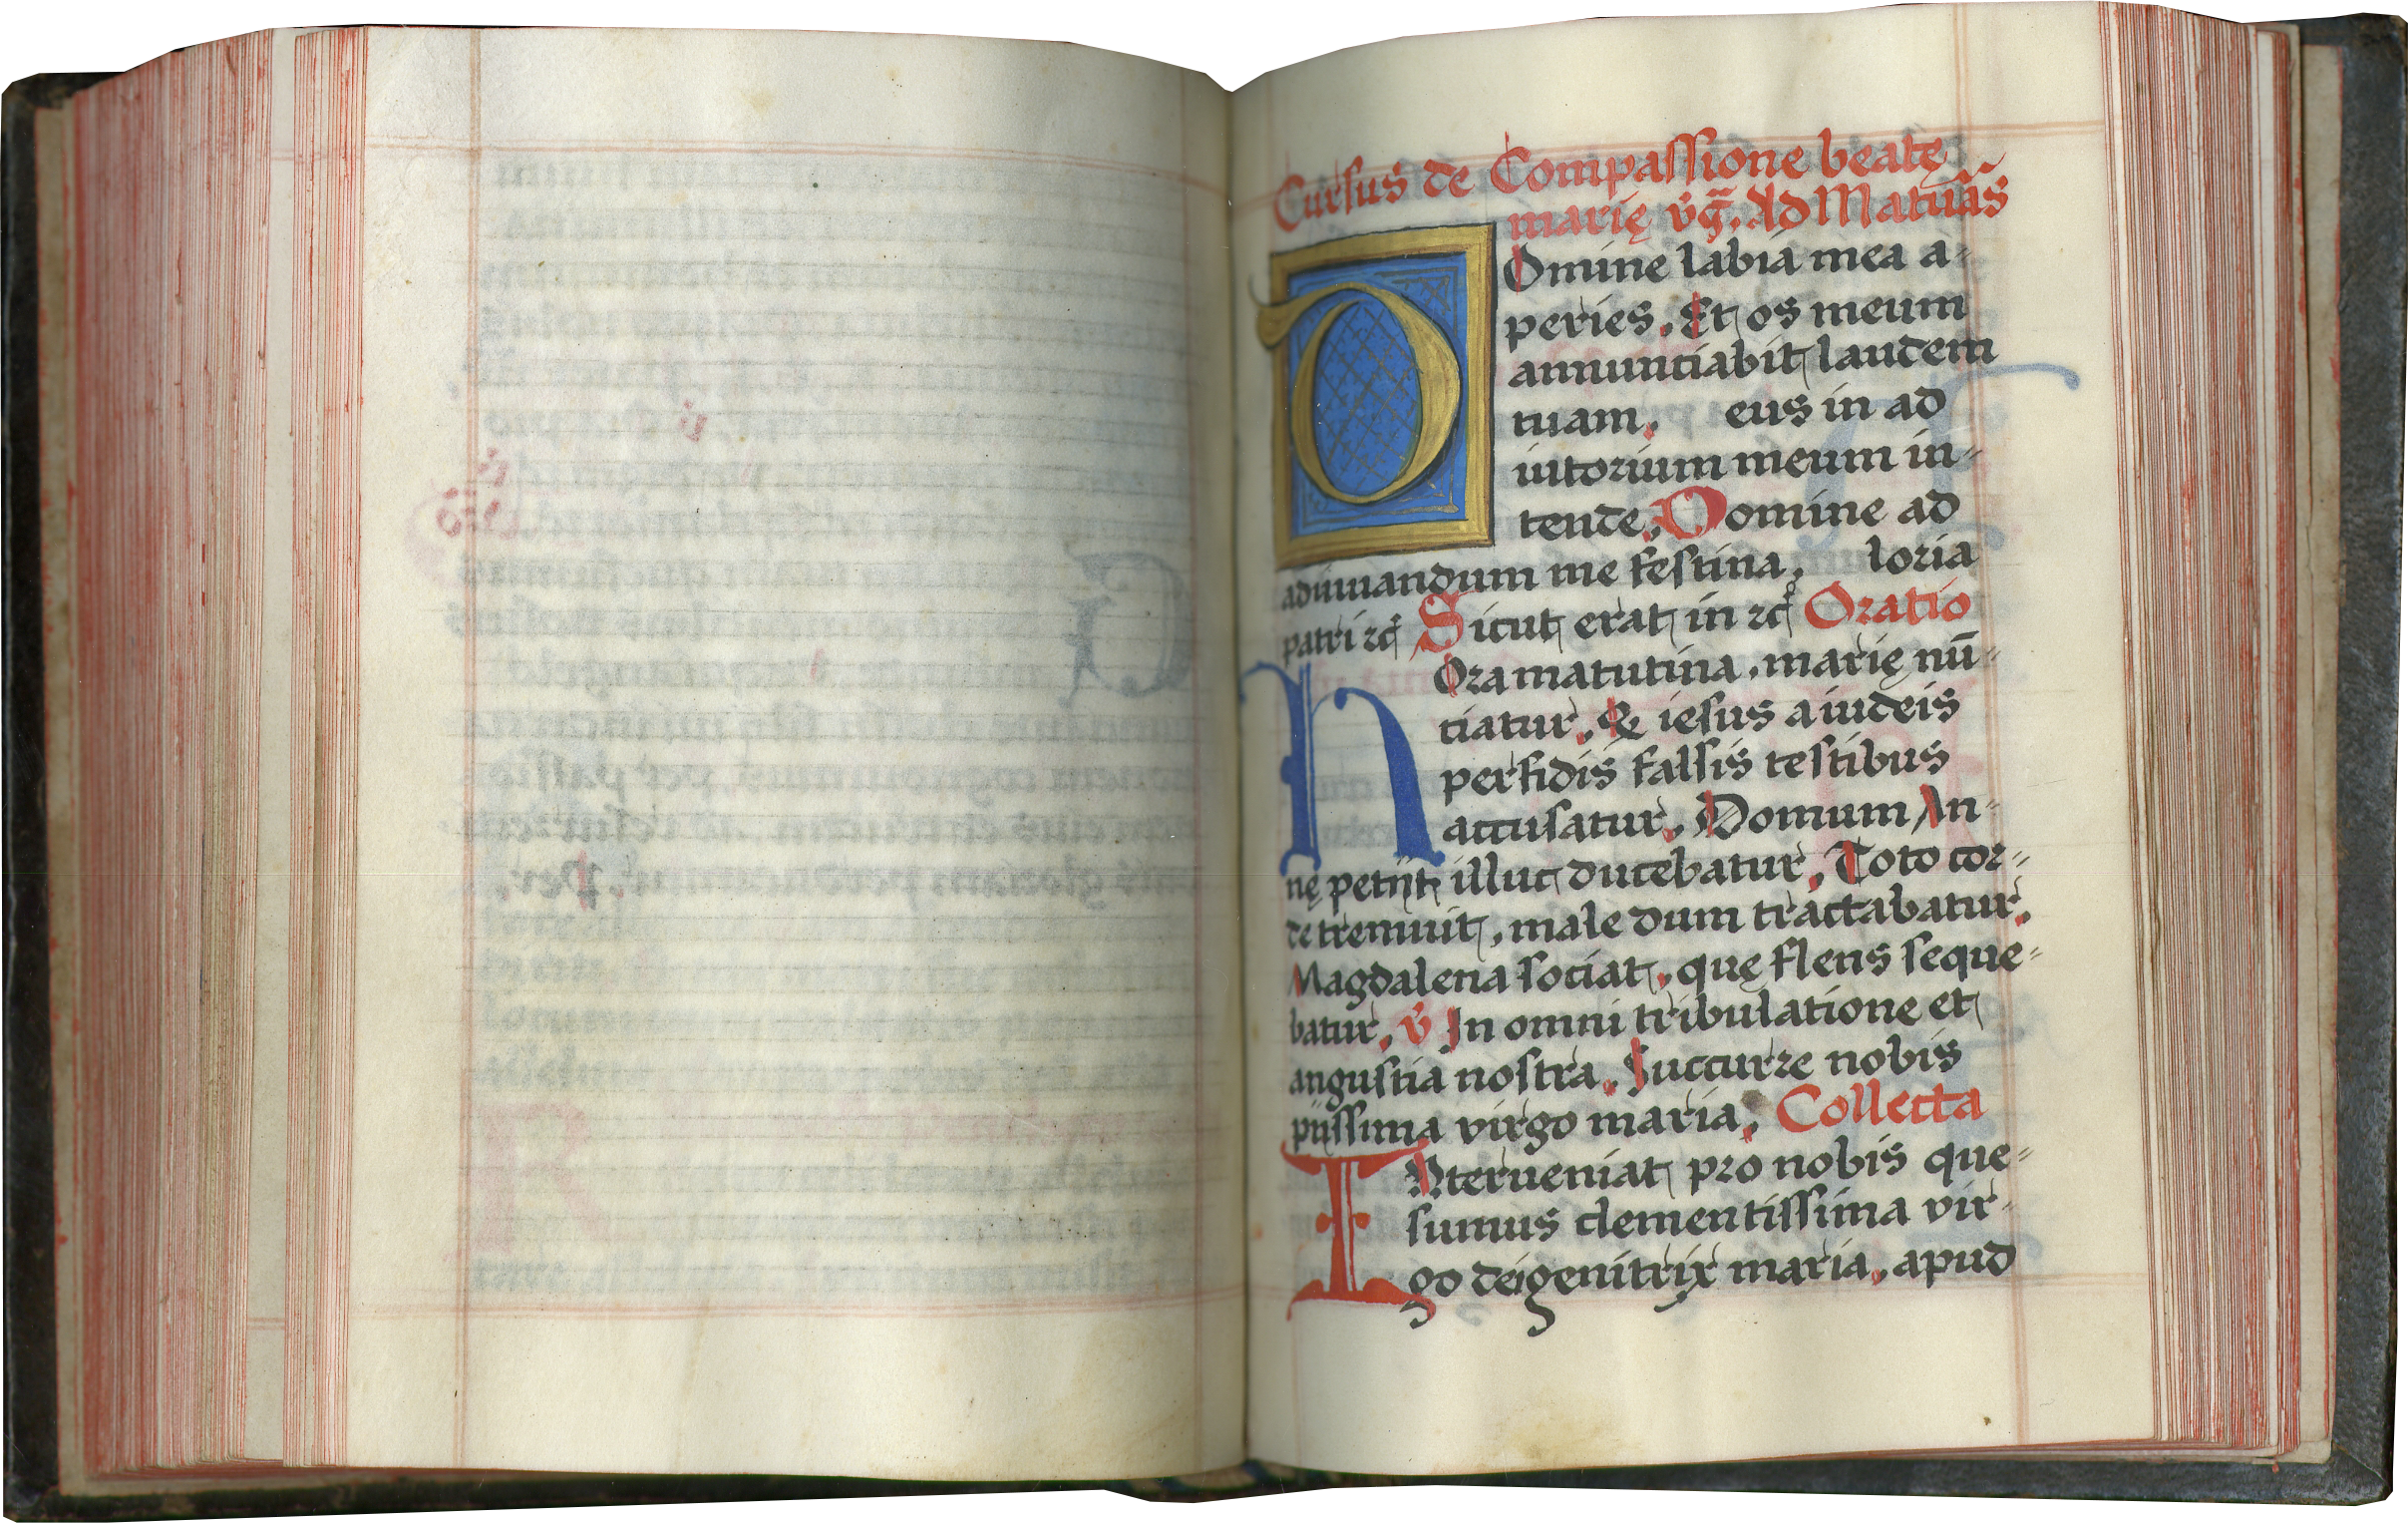 Cursus de Compassione beatę
marię v̄ḡ. Ad Matūas
DOmine labia mea a-
peries. Et os meum
annuntiabit laudem
tuam. eus in ad
iutorium meum in-
tende. Domine ad
adiuuandum me festina. loria
patri ⁊c̄ Sicut erat in ⁊c̄ Oratio
hOra matutina. marię nū-
tiatur. & iesus a iudeis
perfidis falsis testibus
accusatur. Domum An-
nę petijt illuc ducebatur. Toto cor-
de tremuit, male dum tractabatur.
Magdalena sociat. quę flens seque-
batur. v̄ In omni tribulatione et
angustia nostra. Succurre nobis
pijssima virgo maria. Collecta
INterueniat pro nobis que-
sumus clementissima vir-
go dei genitrix maria. apud